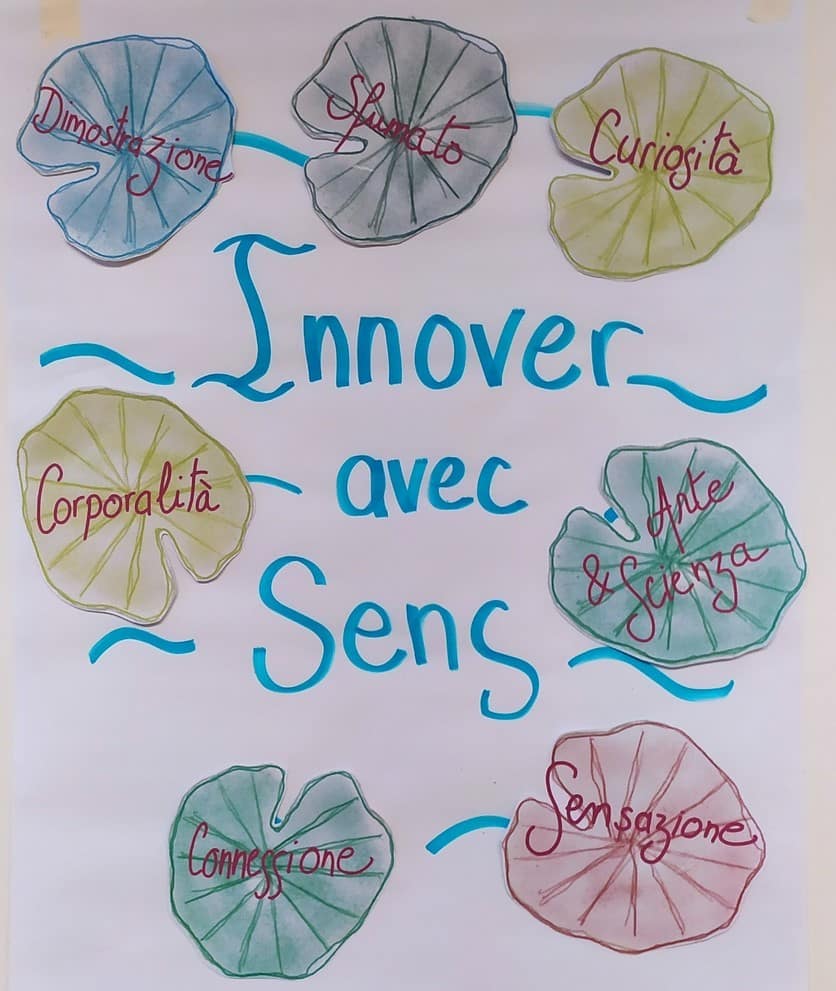 Dimostrazione
Sfumato
Curiosità
Innover
avec
Sens
Corporalità
Arte
& Scienza
Connessione
Sensazione